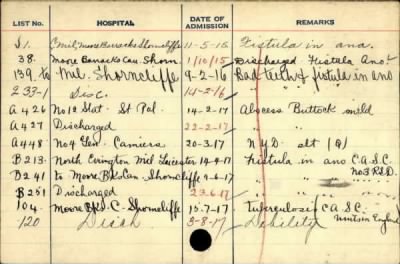 LIST NO. HOSPITAL DATE OF ADMISSION REMARKS
S1. C Mil, Moore Barracks Shorncliffe 11-5-15 Fistula in ana.
38. Moore Barracks Can. Shorn. 1/10/15 Discharged Fistula Ano.
139. to Mil. Shorncliffe 9-2-16 Bad teeth & fistula in ano
233-1 Disc. 14-2-16 " " "
A 426 No 12 Stat. St Pol. 14-2-17 Abscess Buttock mild
A 427 Discharged 22-2-17 " "
A 448 No 4 Gen. Camiers 20-3-17 N.Y.D. alt (9)
B 213. North Evington Mil Leicester 14-4-17 Fistula in ano C.A.S.C.
B 241 to Moore Bks Can. Shorncliffe 9-6-17 " " " No 3 R.S.D.
B 251 Discharged 23.6.17 " " "
104. Moore Bks. C. Shorncliffe 15-7-17 Tuberculosis C.A.S.C.
120 Disch 3-8-17 Debility England